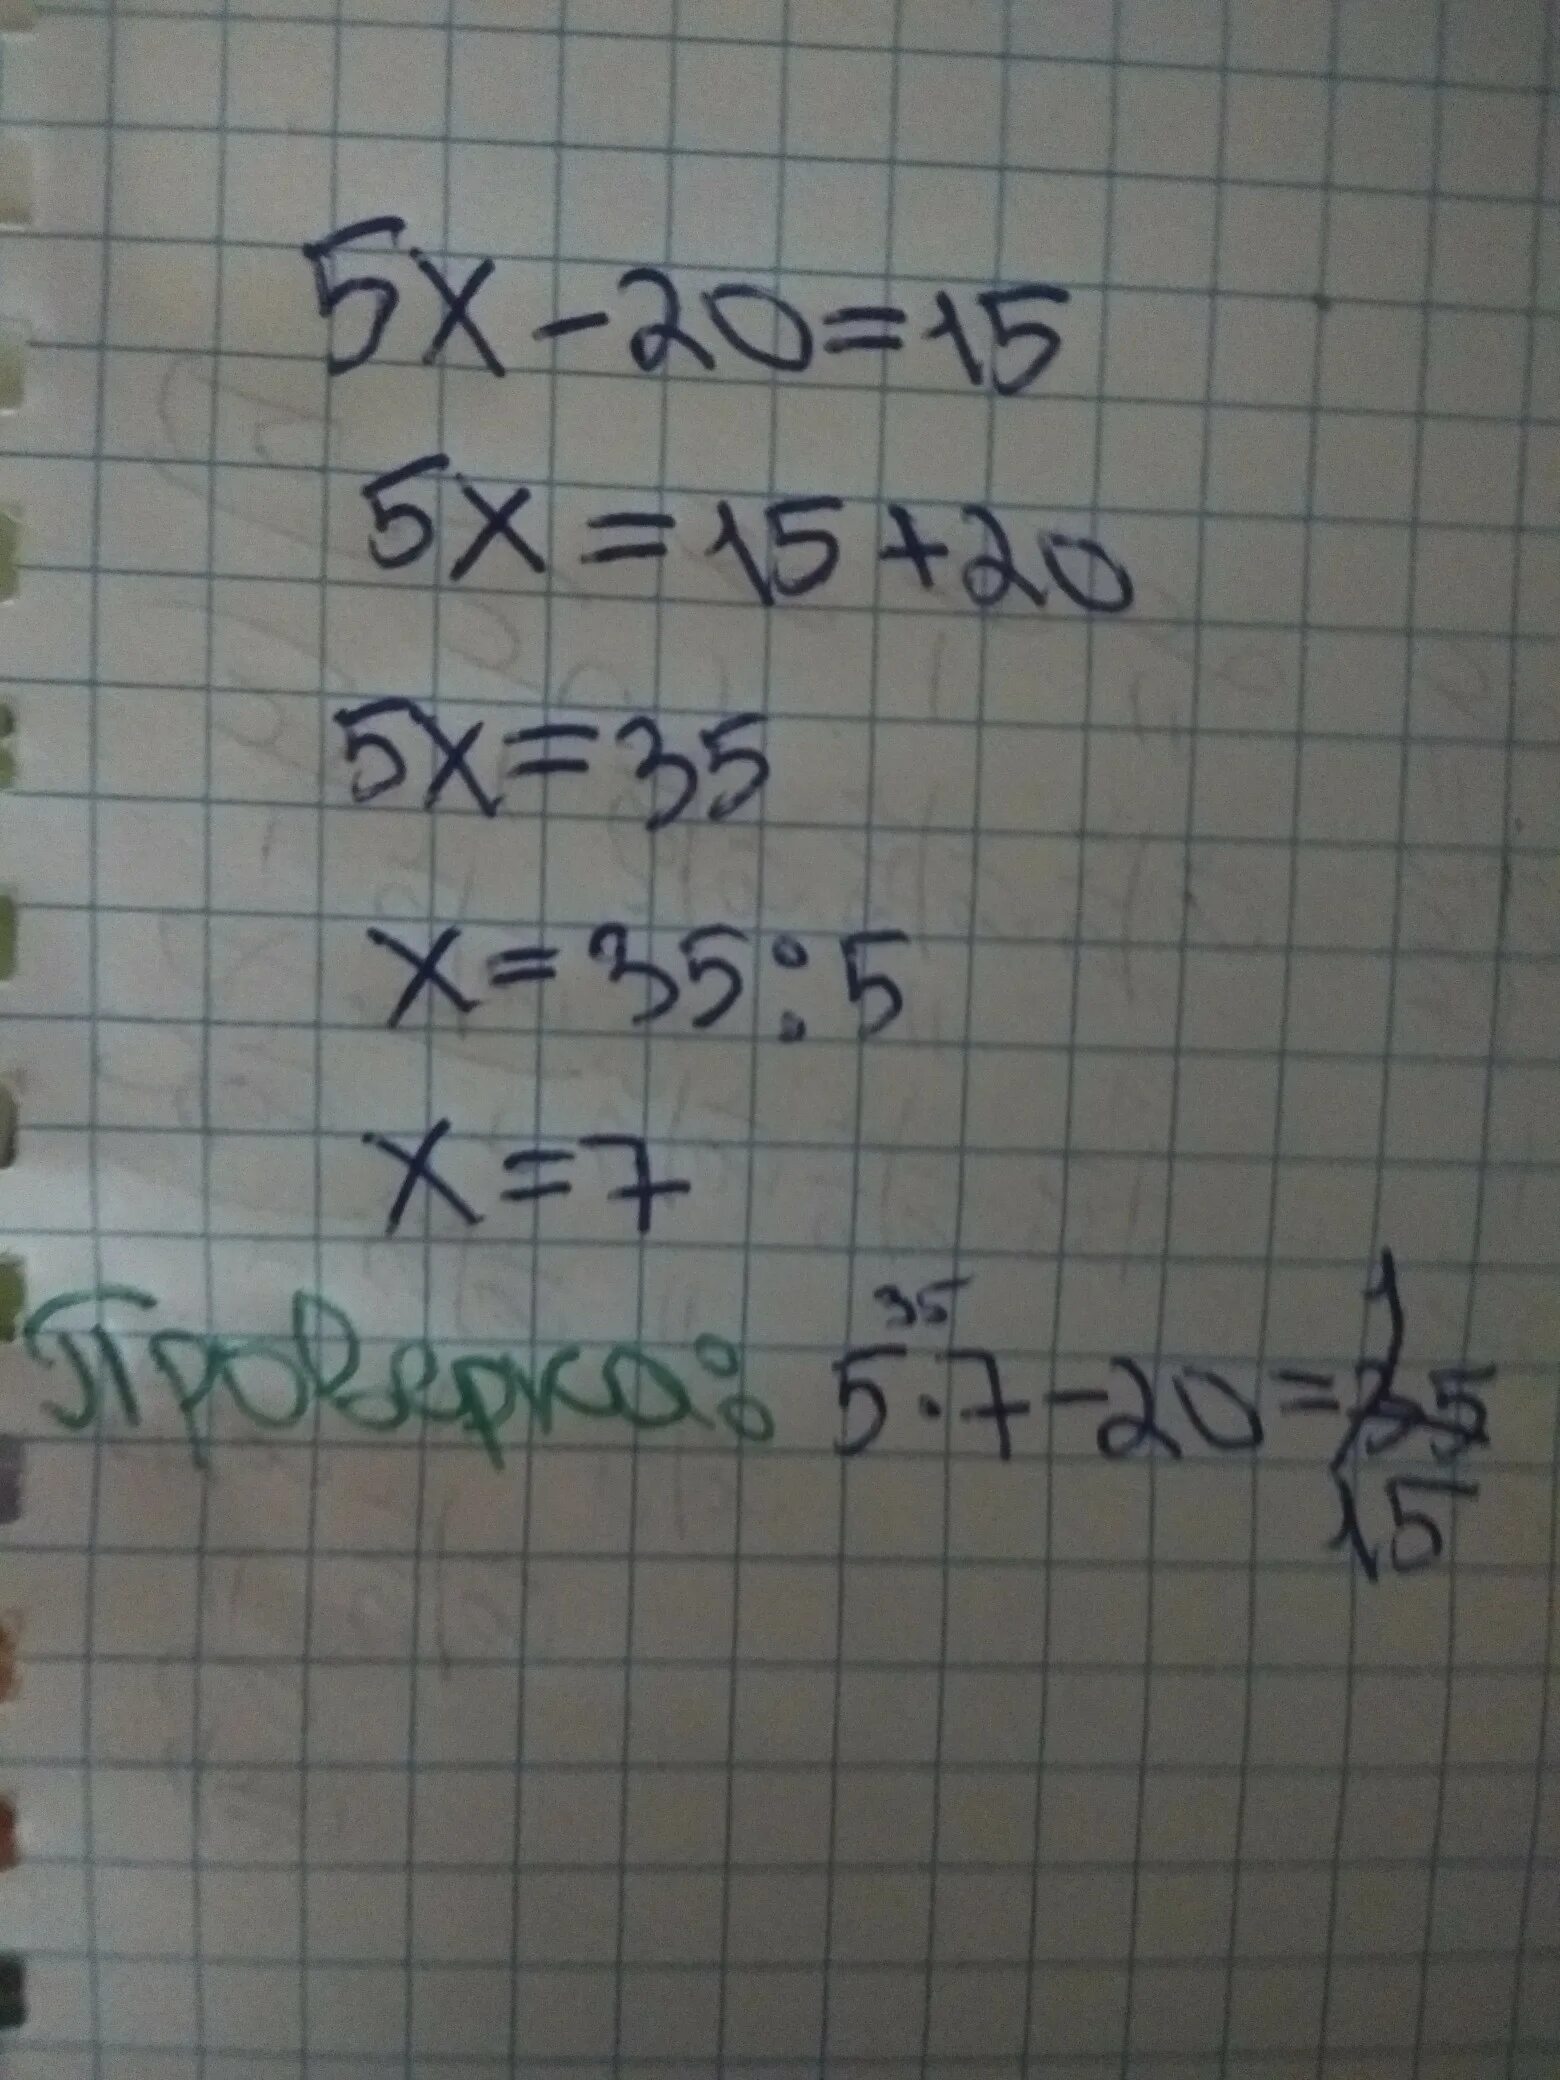 5x - 20 = 15
5x = 15 + 20
5x = 35
x = 35 : 5
x = 7
35
Проверка: 5 · 7 - 20 =
15